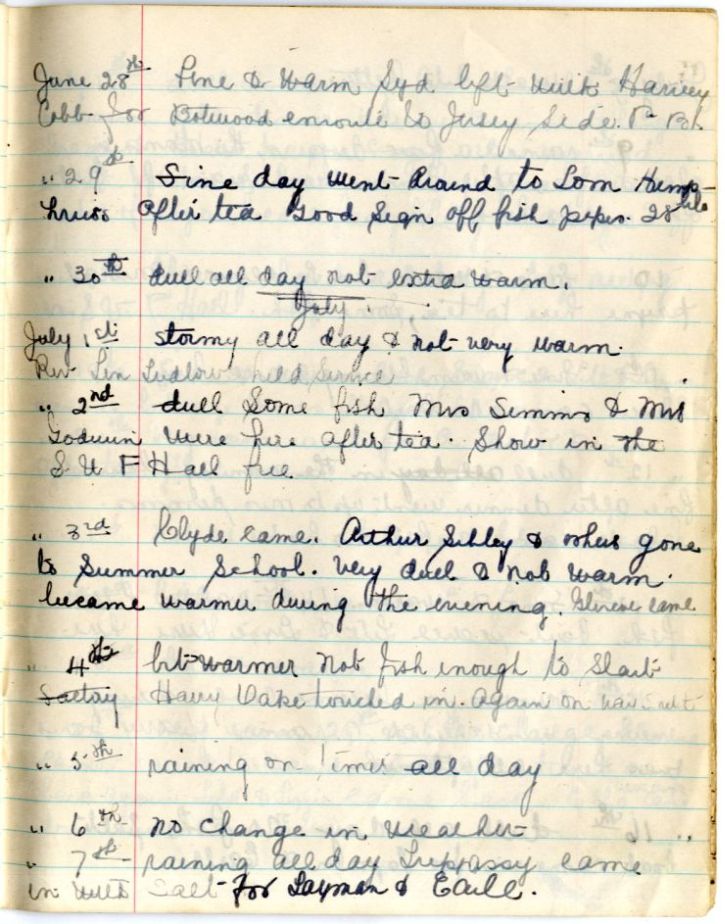 June 28th Fine & Warm Syd. left with Harvey
Cobb for Botwood enroute to Jersey Side. P. B.
" 29th Fine day went around to Tom Hump-
hries after tea Good Sign off fish 28
" 30th dull all day not extra warm.
July
July 1st stormy all day & not very warm.
Rev Len Ludlow held Service
" 2nd dull Some fish Mrs Simms & Mrs
Godwin were here after tea. Show in the
S U F Hall free
" 3rd Clyde came. Arthur Sibley & others gone
to Summer School. Very dull & not warm.
became warmer during the evening. Glencoe came
" 4th bit warmer not fish enough to Start
Harry Vake touched in. Again on
" 5th raining on times all day
" 6th no change in weather
" 7th raining all day Trepassy came
in with Salt for Layman & Earle.